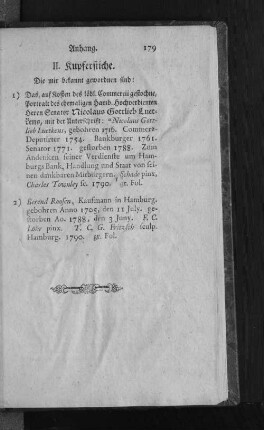 Anhang. 179
II. Kupferstiche.
Die mir bekannt gewordnen sind:
1) Das, auf Kosten des löbl. Commercii gestochne,
Portrait des ehemaligen Hamb. Hochverdienten
Herrn Senator Nicolaus Gottlieb Luet-
kens, mit der Unterschrift: "Nicolaus Gott-
lieb Luetkens, gebohren 1716. Commerz-
Deputirter 1754. Bankbürger 1761.
Senator 1771. gestorben 1788. Zum
Andenken seiner Verdienste um Ham-
burgs Bank, Handlung und Staat von sei-
nen dankbaren Mitbürgern. Schade pinx.
Charles Townley sc. 1790. gr. Fol.
2) Berend Roosen, Kaufmann in Hamburg,
gebohren Anno 1705, den 11 July, ge-
storben Ao. 1788, den 3 Juny. F. C.
Löhr pinx. T. C. G. Fritzsch sculp.
Hamburg. 1790. gr. Fol.